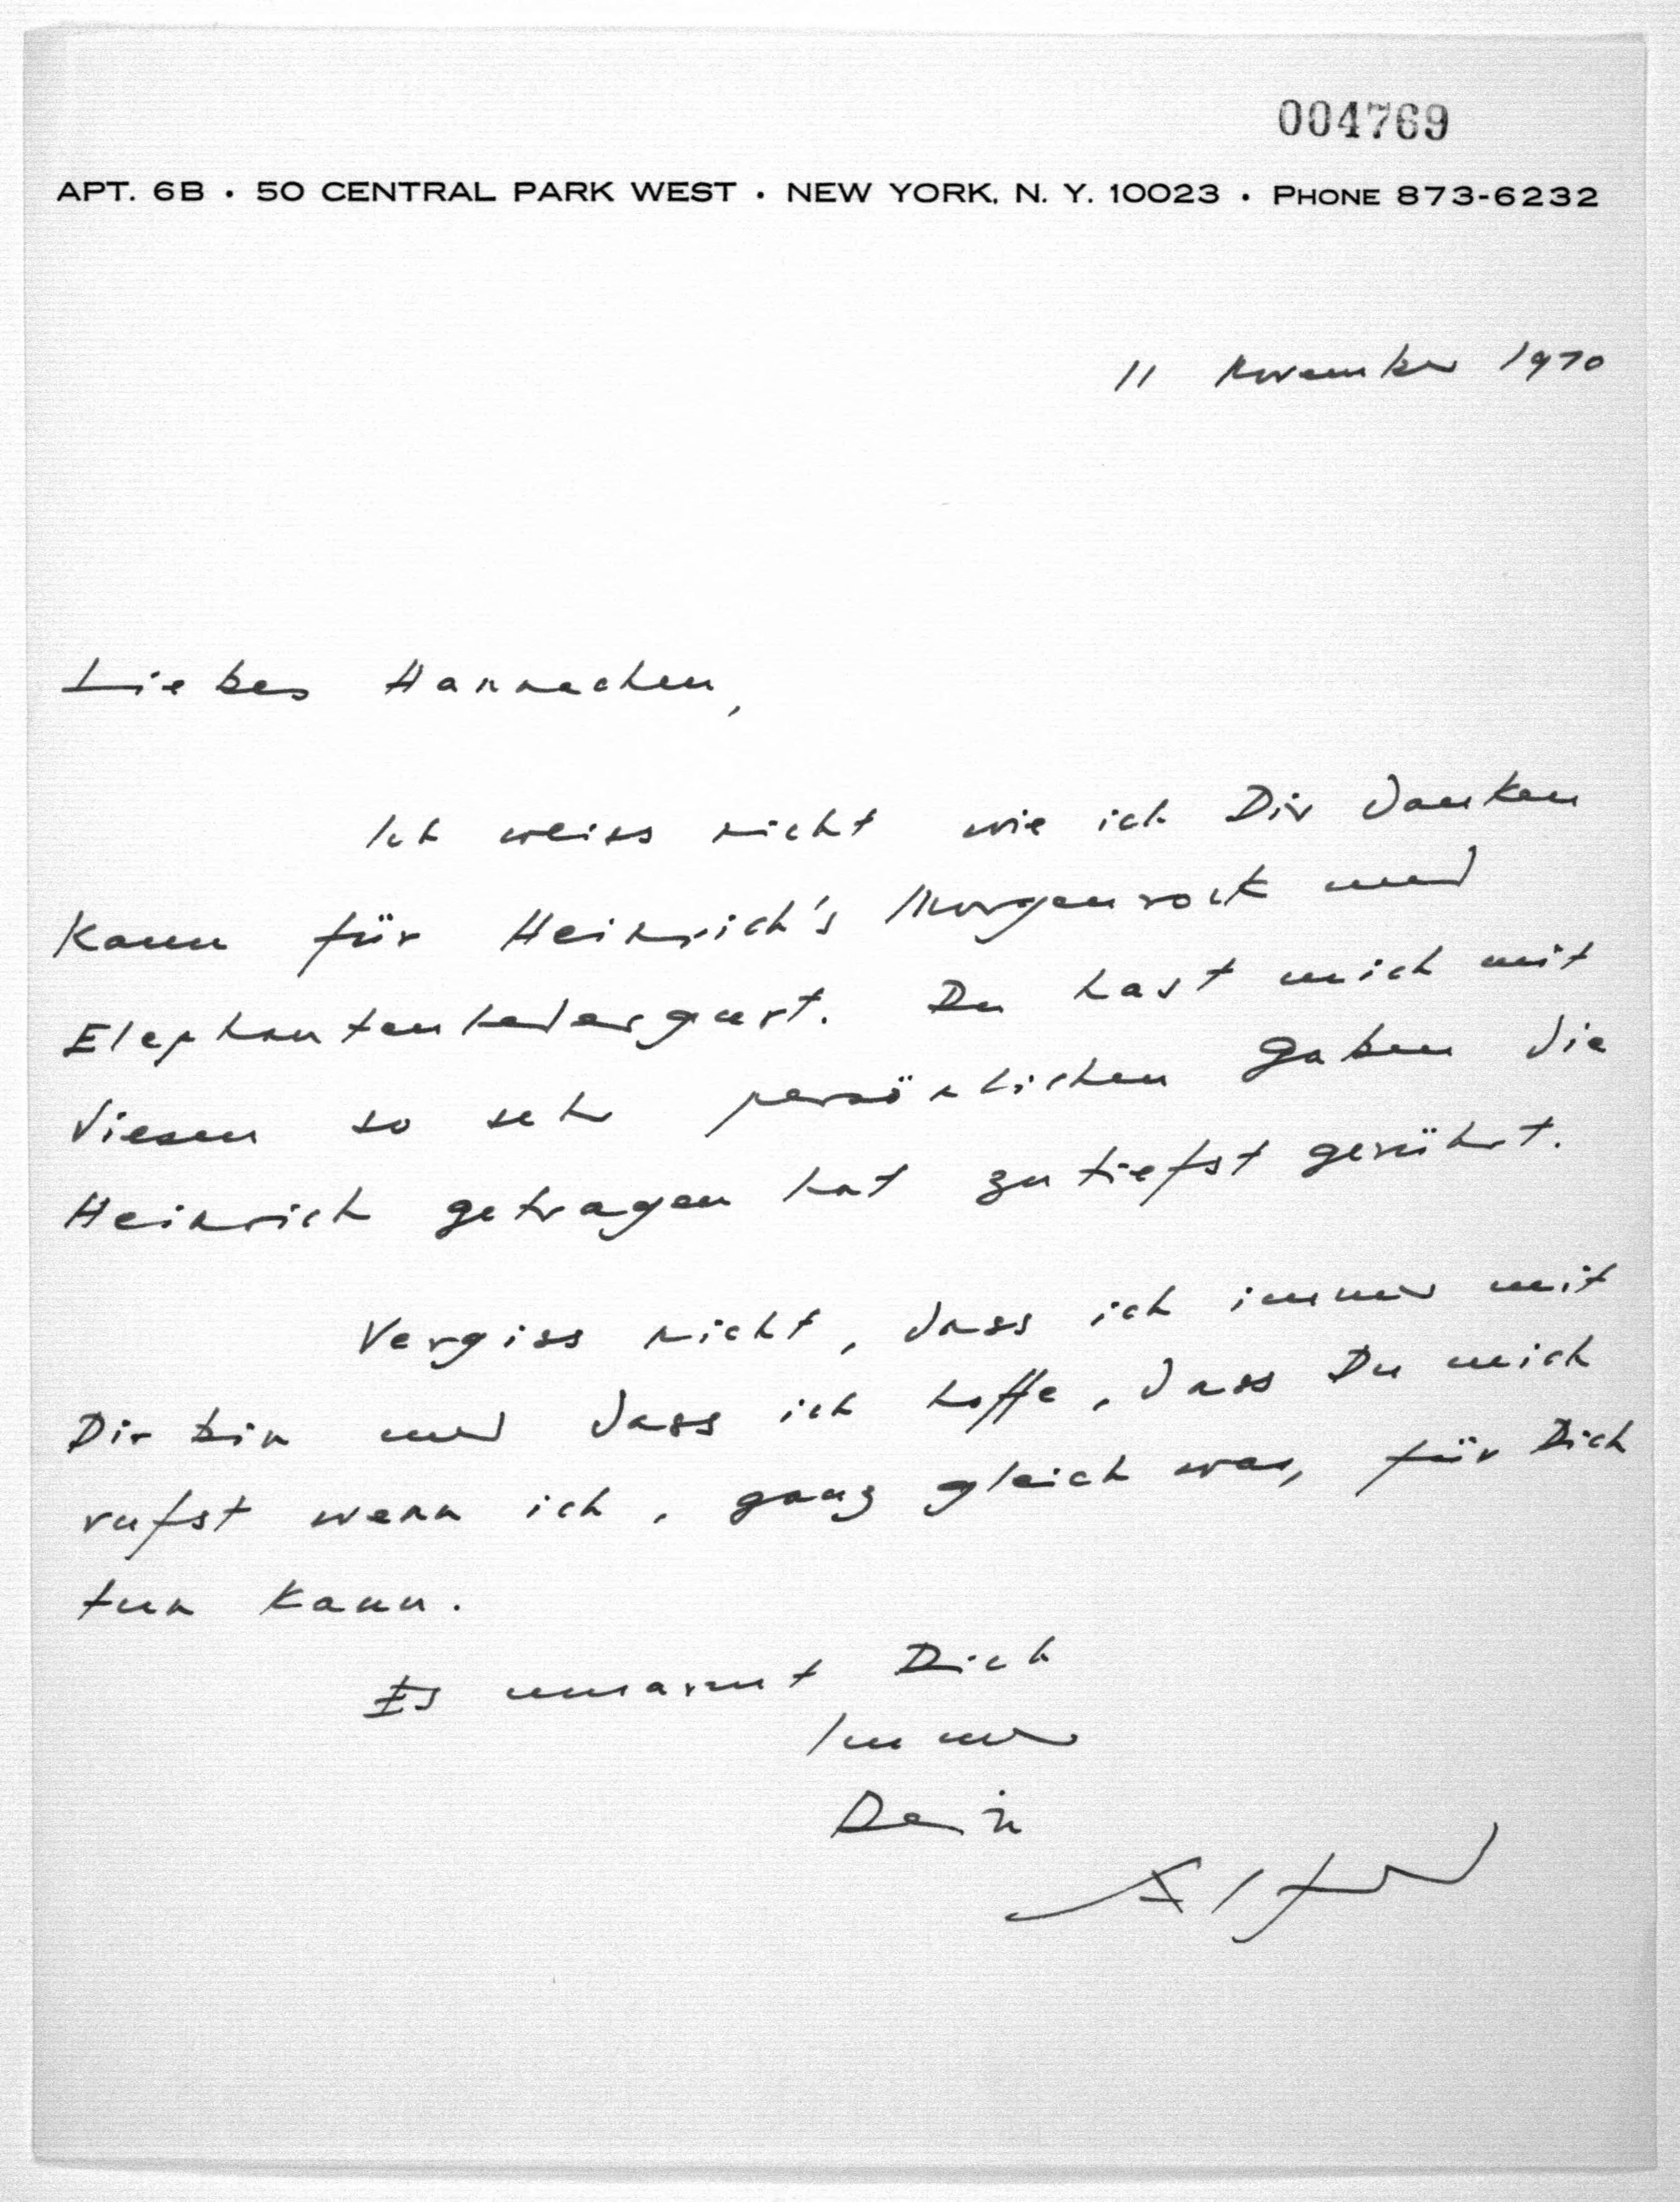 004769
APT. 6B • 50 CENTRAL PARK WEST • NEW YORK, N. Y. 10023 • PHONE 873-6232
11 November 1970
Liebes Hannachen,
Ich weiss nicht wie ich Dir danken
kann für Heinrich's Morgenrock und
Elephantenledergurt. Du hast mich mit
diesen so sehr persönlichen Gaben die
Heinrich getragen hat zutiefst gerührt.
Vergiss nicht, dass ich immer mit
Dir bin und dass ich hoffe, dass Du mich
rufst wenn ich, ganz gleich was, für Dich
tun kann.
Es umarmt Dich
Immer
Dein
Alfred